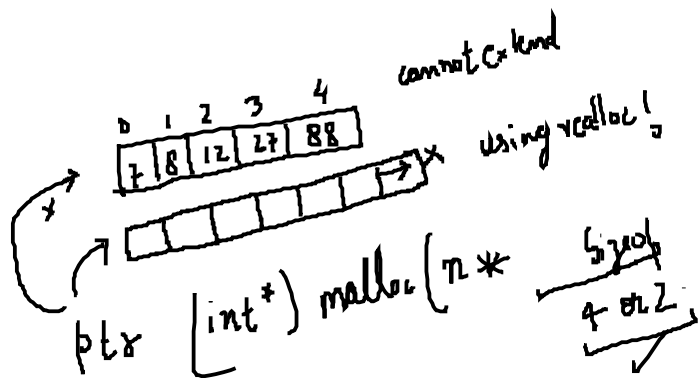 cannot extend
0 1 2 3 4
7 8 12 27 88
using realloc!
ptr (int*) malloc(n *
sizeof
4 or 2